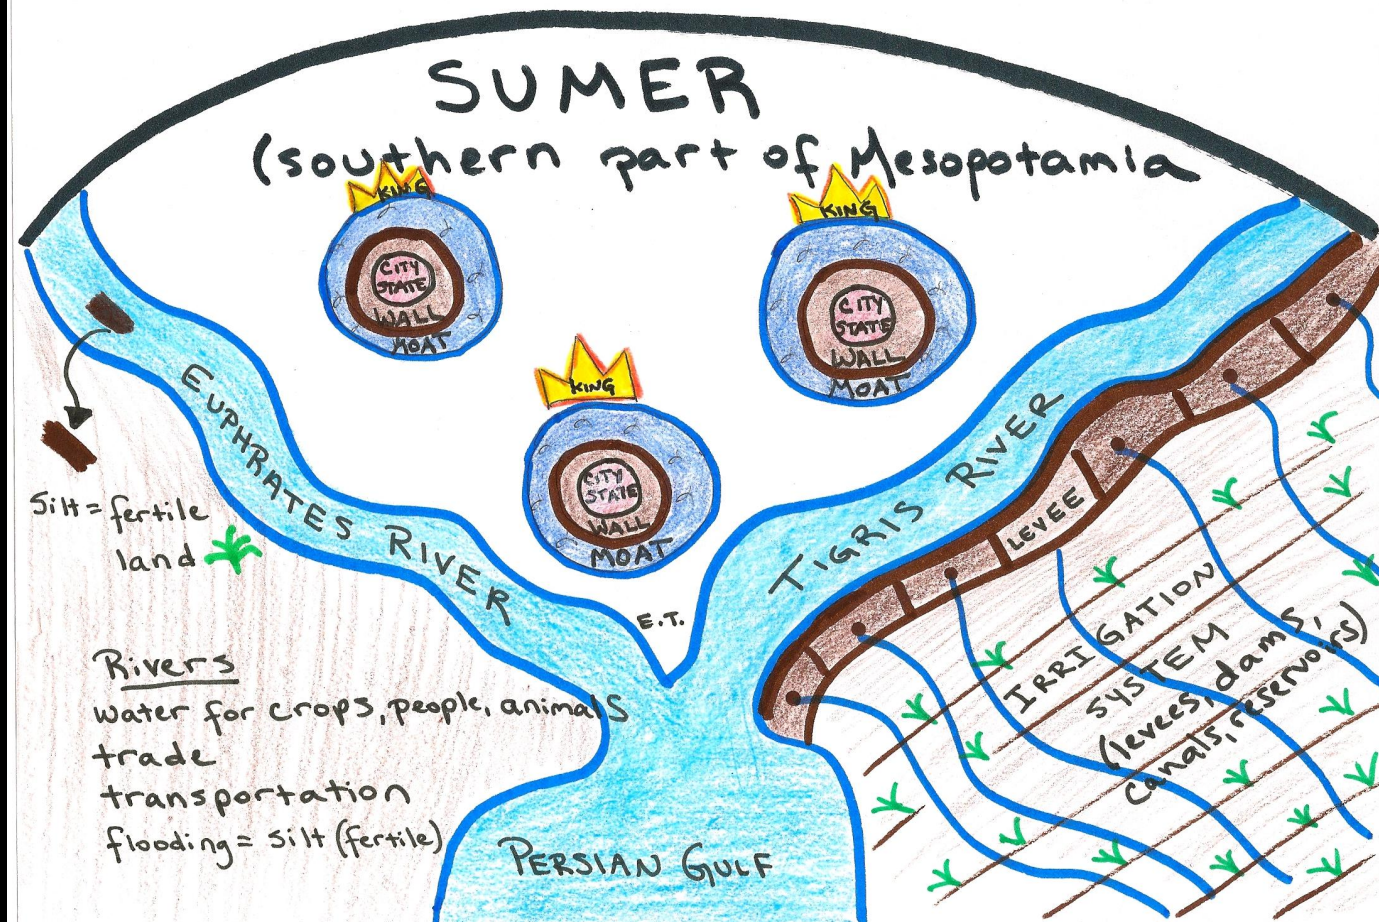 SUMER
(southern part of Mesopotamia
KING
CITY
STATE
WALL
MOAT
KING
CITY
STATE
WALL
MOAT
KING
CITY
STATE
WALL
MOAT
EUPHRATES RIVER
TIGRIS RIVER
E.T.
Silt = fertile
land
LEVEE
IRRIGATION
SYSTEM
(levees, dams,
canals, reservoirs)
Rivers
water for crops, people, animals
trade
transportation
flooding = silt (fertile)
PERSIAN GULF